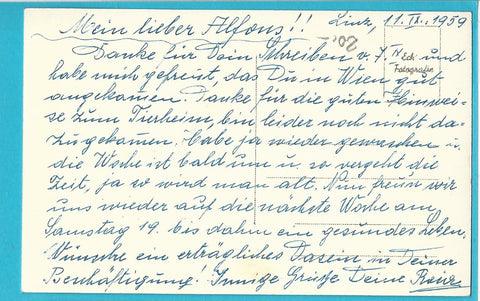 Mein lieber Alfons!! Linz, 11. IX., 1959
Danke für Dein Schreiben v. 7. IX und
Eck
Fotografie
habe mich gefreut, das Du in Wien gut
angekommen. Danke für die guten Hinwei-
se zum Tierheim, bin leider noch nicht da-
zugekommen. Habe ja wieder gewaschen u.
die Woche ist bald um u. so vergeht die
Zeit, ja so wird man alt. Nun freuen wir
uns wieder auf die nächste Woche am
Samstag 19. bis dahin ein gesundes Leben.
Wünsche ein erträgliches Dasein in Deiner
Beschäftigung! Innige Grüße Deine